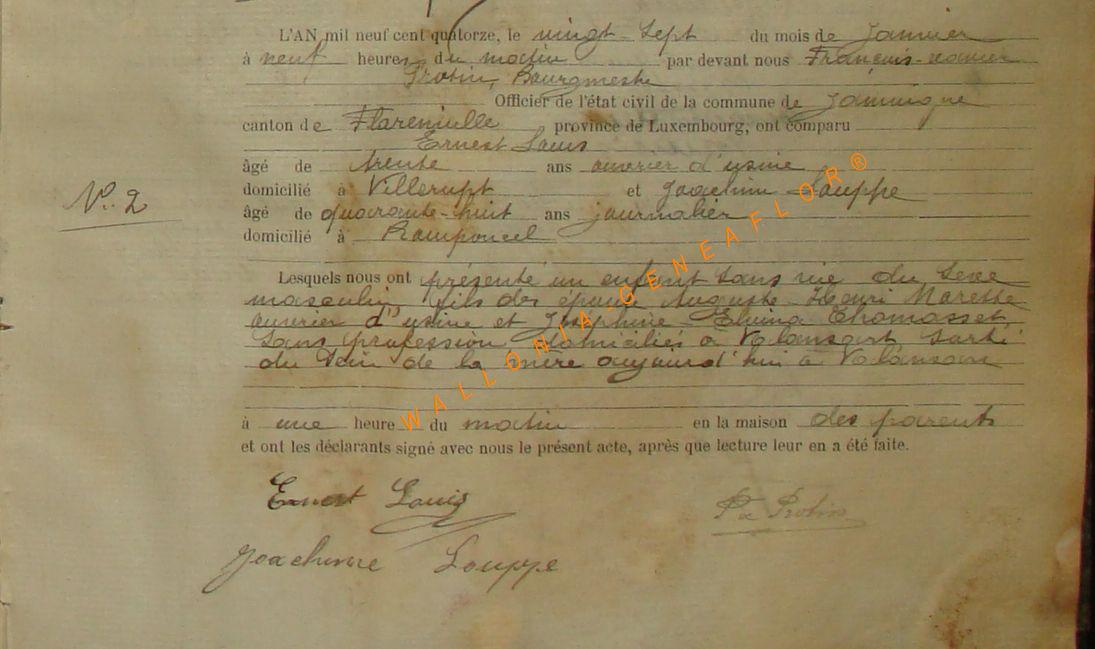 L'AN mil neuf cent quatorze, le vingt-sept du mois de Janvier
à neuf heures du matin par devant nous François-Xavier
Protin, Bourgmestre
Officier de l'état civil de la commune de Jamoigne
canton de Florenville province de Luxembourg, ont comparu
Ernest Louis
âgé de trente ans ouvrier d'usine
domicilié à Villerupt et Joachim Louppe
N° 2
âgé de quarante-huit ans journalier
domicilié à
Lesquels nous ont présenté un enfant sans vie du sexe
masculin, fils des époux Auguste-Henri Marette
ouvrier d'usine et Joséphine-Elvina Thomasset
sans profession domiciliés à Valansart sorti
du sein de la mère aujourd'hui à Valansart
à une heure du matin en la maison des parents
et ont les déclarants signé avec nous le présent acte, après que lecture leur en a été faite.
Ernest Louis
Protin
Joachim Louppe
WALLONIA-GENEAFLOR®